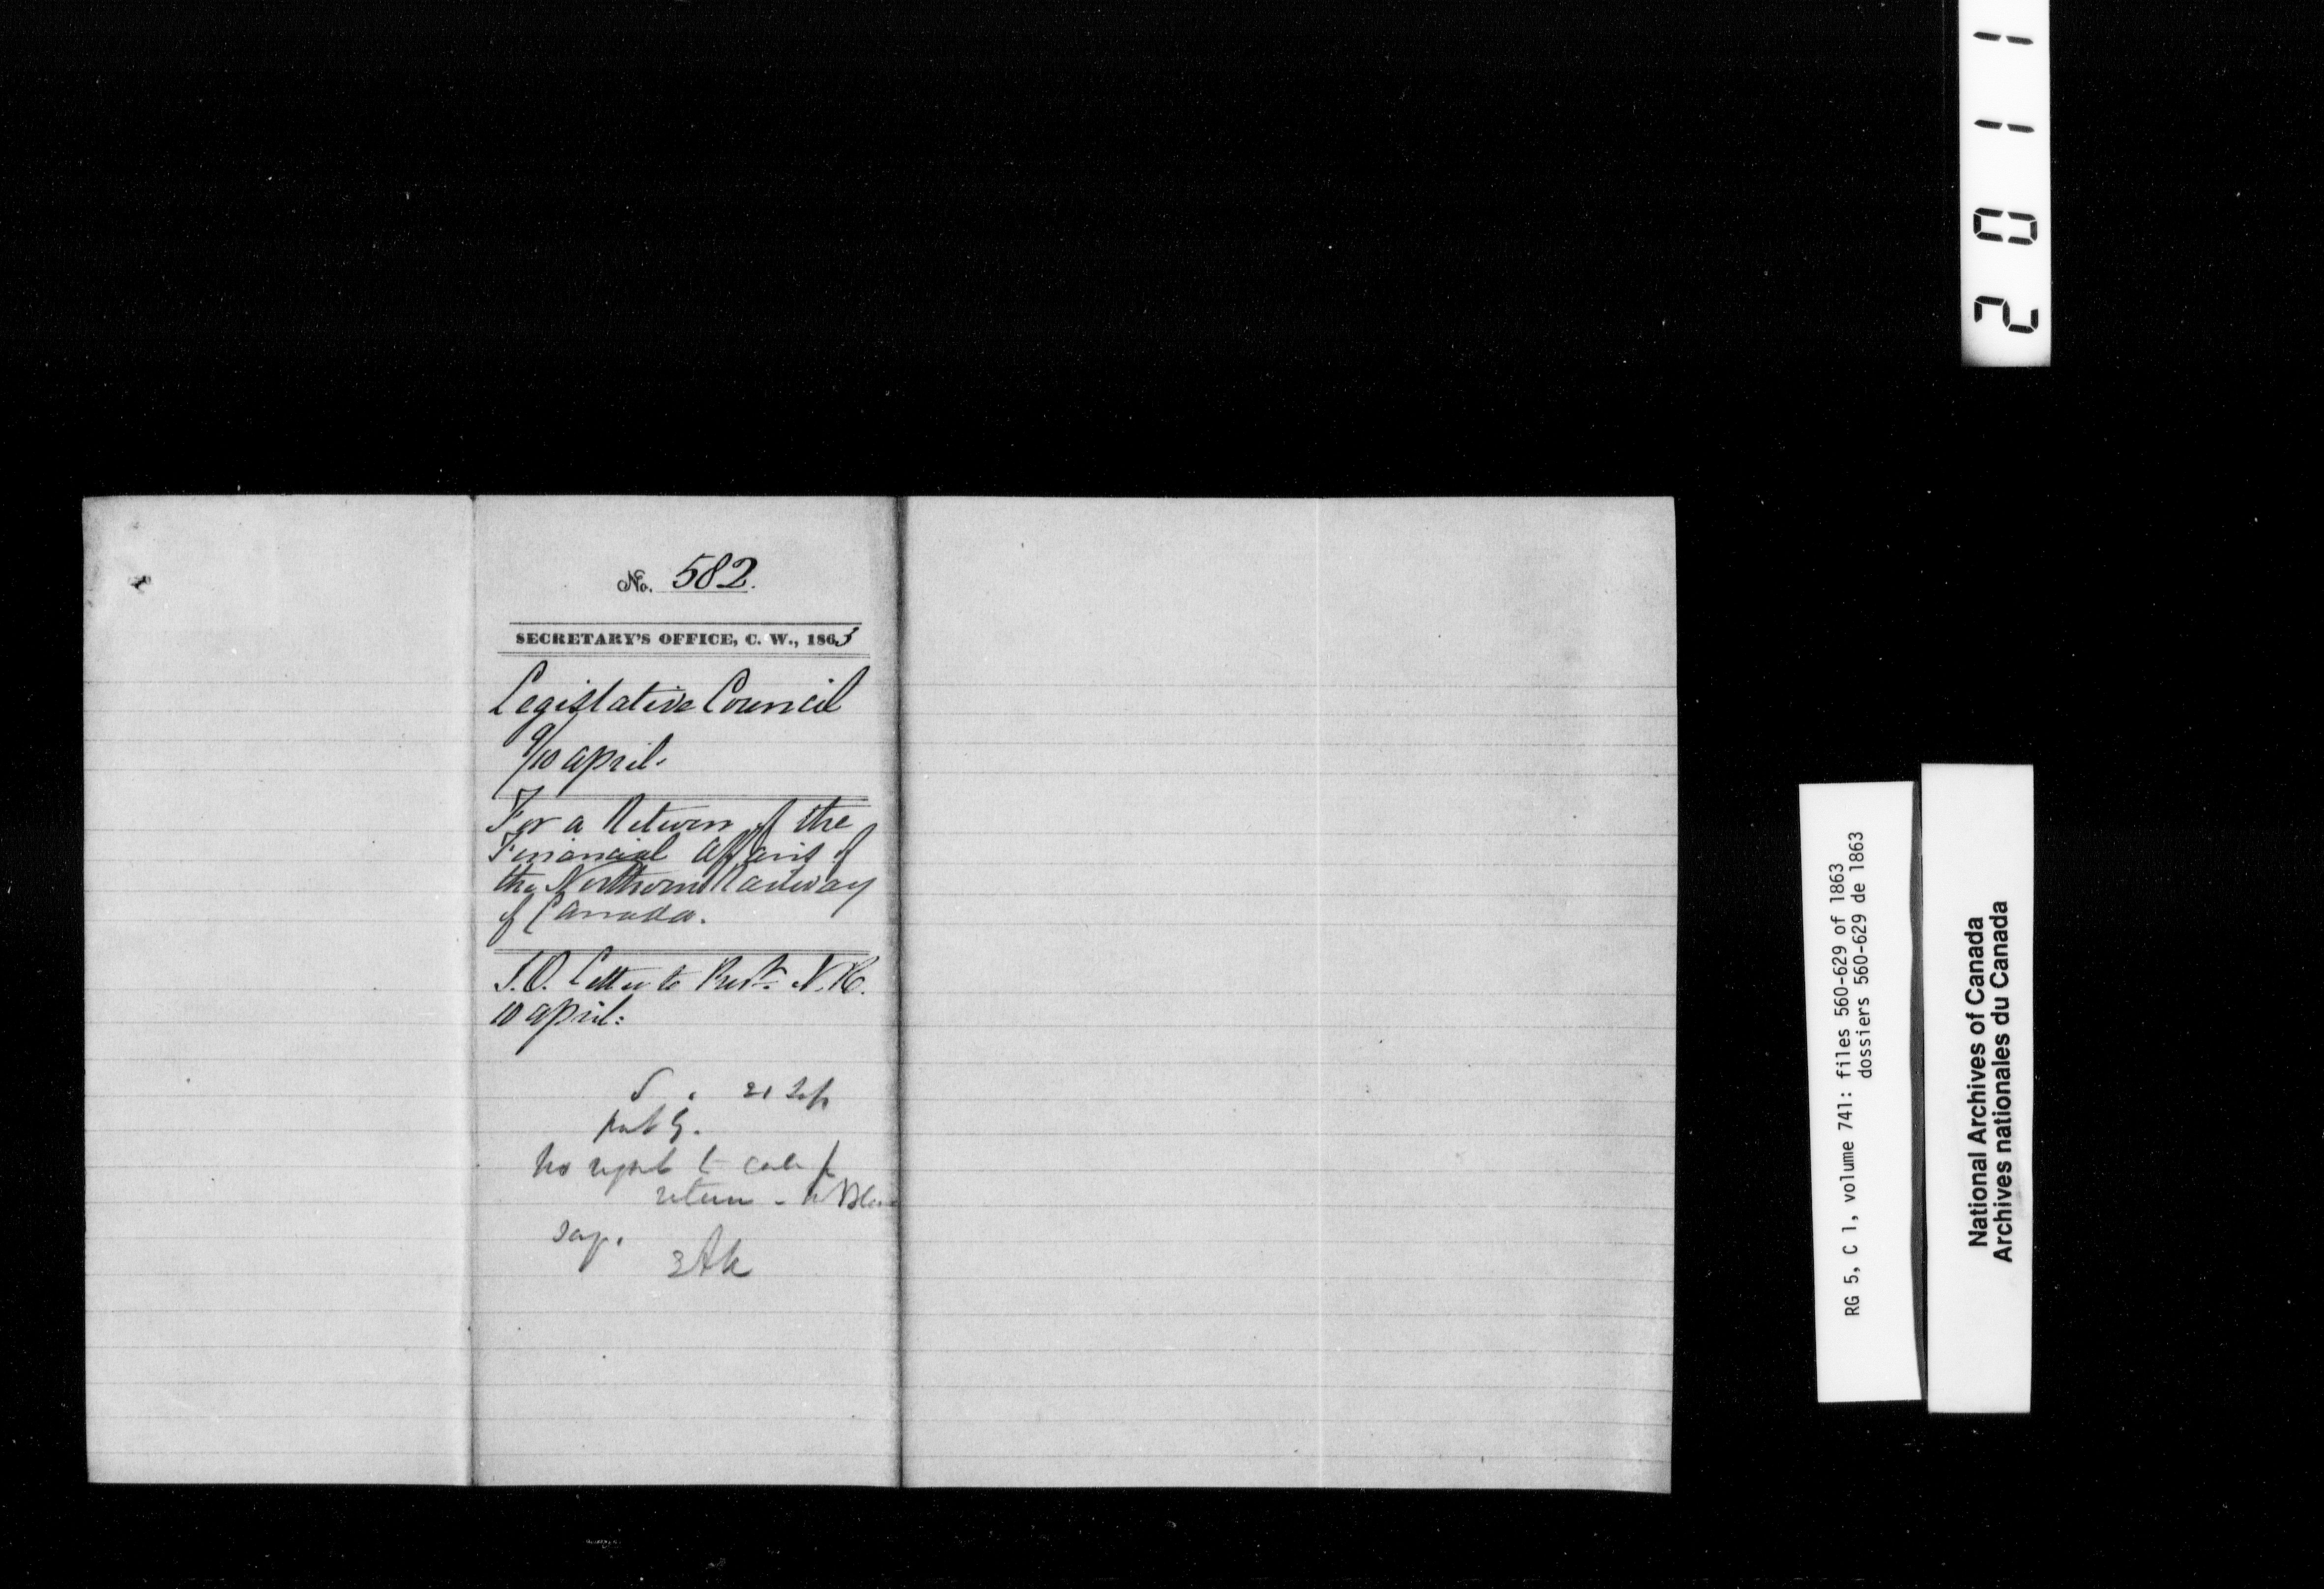 No. 582.
SECRETARY'S OFFICE, C. W., 1863
Legislative Council
9/10 April.
For a Return of the
Financial Affairs of
the Northern Railway
of Canada.
S.O. Letter to Prest. N.R.
10 April.
21 Sep
No right to call for
return -
says.
2011
RG 5, C 1, volume 741: files 560-629 of 1863
dossiers 560-629 de 1863
National Archives of Canada
Archives nationales du Canada